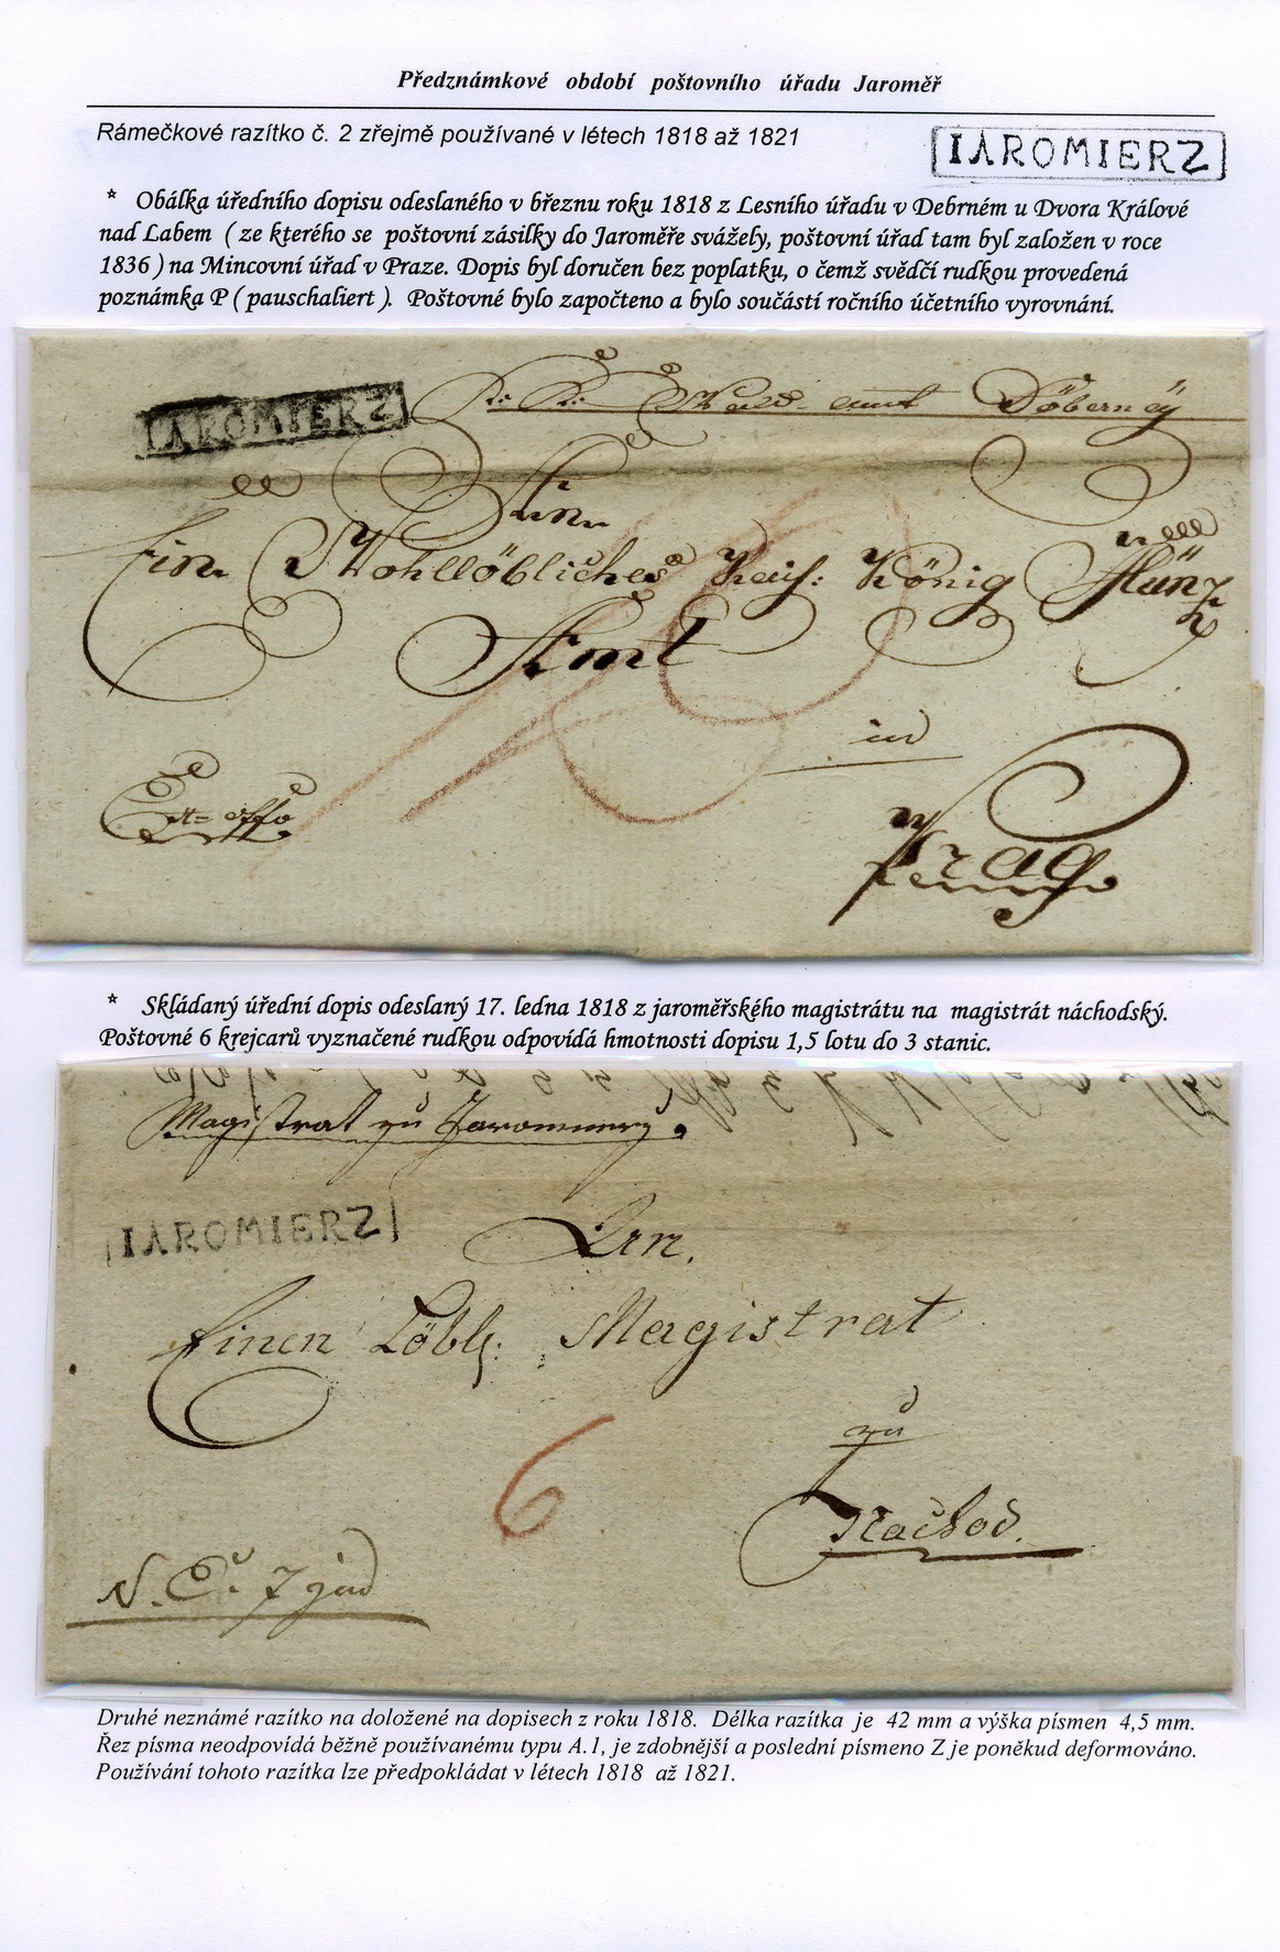 Předznámkové období poštovního úřadu Jaroměř
Rámečkové razítko č. 2 zřejmě používané v létech 1818 až 1821
IAROMIERZ
* Obálka úředního dopisu odeslaného v březnu roku 1818 z Lesního úřadu v Debrném u Dvora Králové
nad Labem ( ze kterého se poštovní zásilky do Jaroměře svážely, poštovní úřad tam byl založen v roce
1836 ) na Mincovní úřad v Praze. Dopis byl doručen bez poplatku, o čemž svědčí rudkou provedená
poznámka P ( pauschaliert ). Poštovné bylo započteno a bylo součástí ročního účetního vyrovnání.
IAROMIERZ
K: K: Wald-amt Döberney
An
Ein Wohllöbliches Kais: König Münz
Amt
in
Ex offo
Prag
* Skládaný úřední dopis odeslaný 17. ledna 1818 z jaroměřského magistrátu na magistrát náchodský.
Poštovné 6 krejcarů vyznačené rudkou odpovídá hmotnosti dopisu 1,5 lotu do 3 stanic.
Magistrat zu Jaromierz.
IAROMIERZ
An.
Einen Löbl: Magistrat
6
zu
Nachod.
N. E. 7
Druhé neznámé razítko na doložené na dopisech z roku 1818. Délka razítka je 42 mm a výška písmen 4,5 mm.
Řez písma neodpovídá běžně používanému typu A.1, je zdobnější a poslední písmeno Z je poněkud deformováno.
Používání tohoto razítka lze předpokládat v létech 1818 až 1821.